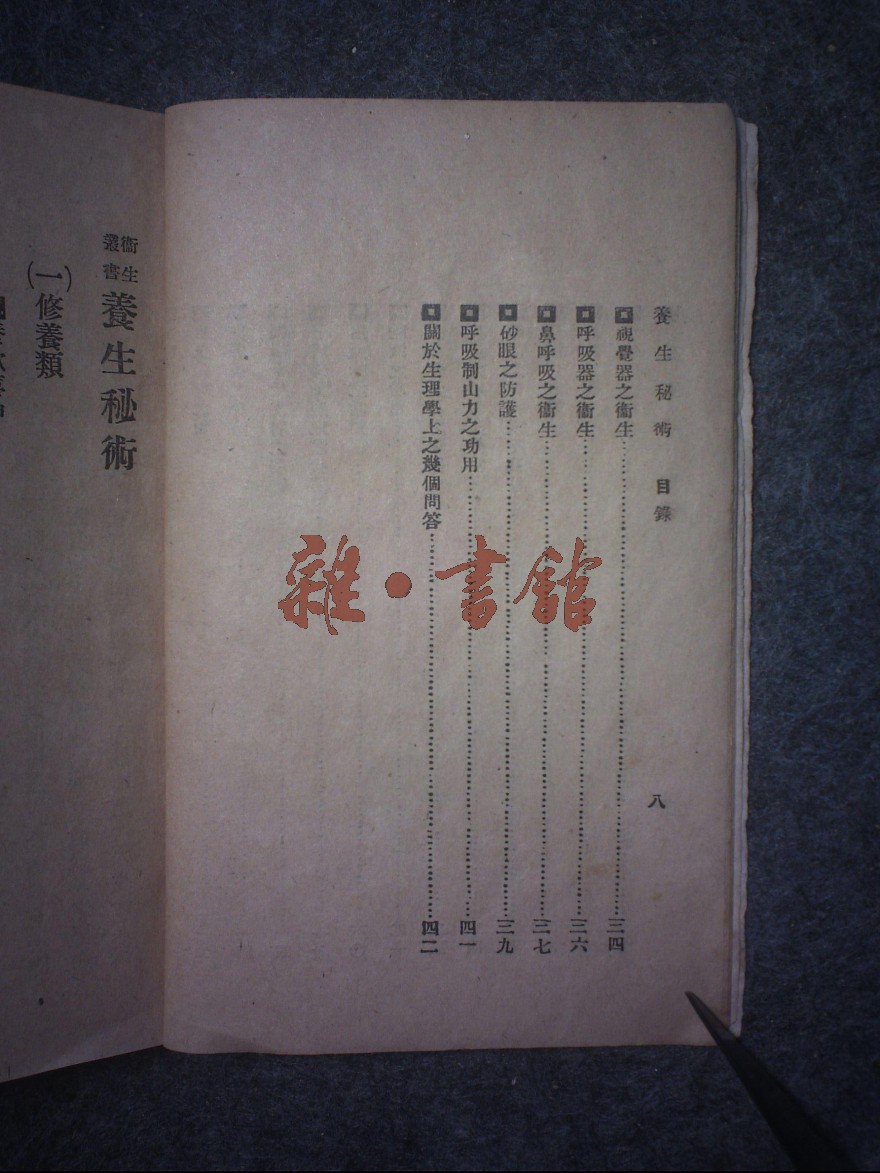 養生秘術 目錄 八
視覺器之衞生 三四
呼吸器之衞生 三六
鼻呼吸之衞生 三七
砂眼之防護 三九
呼吸制山力之功用 四一
關於生理學上之幾個問答 四二
衞生叢書 養生秘術
(一)修養類
雜・書館